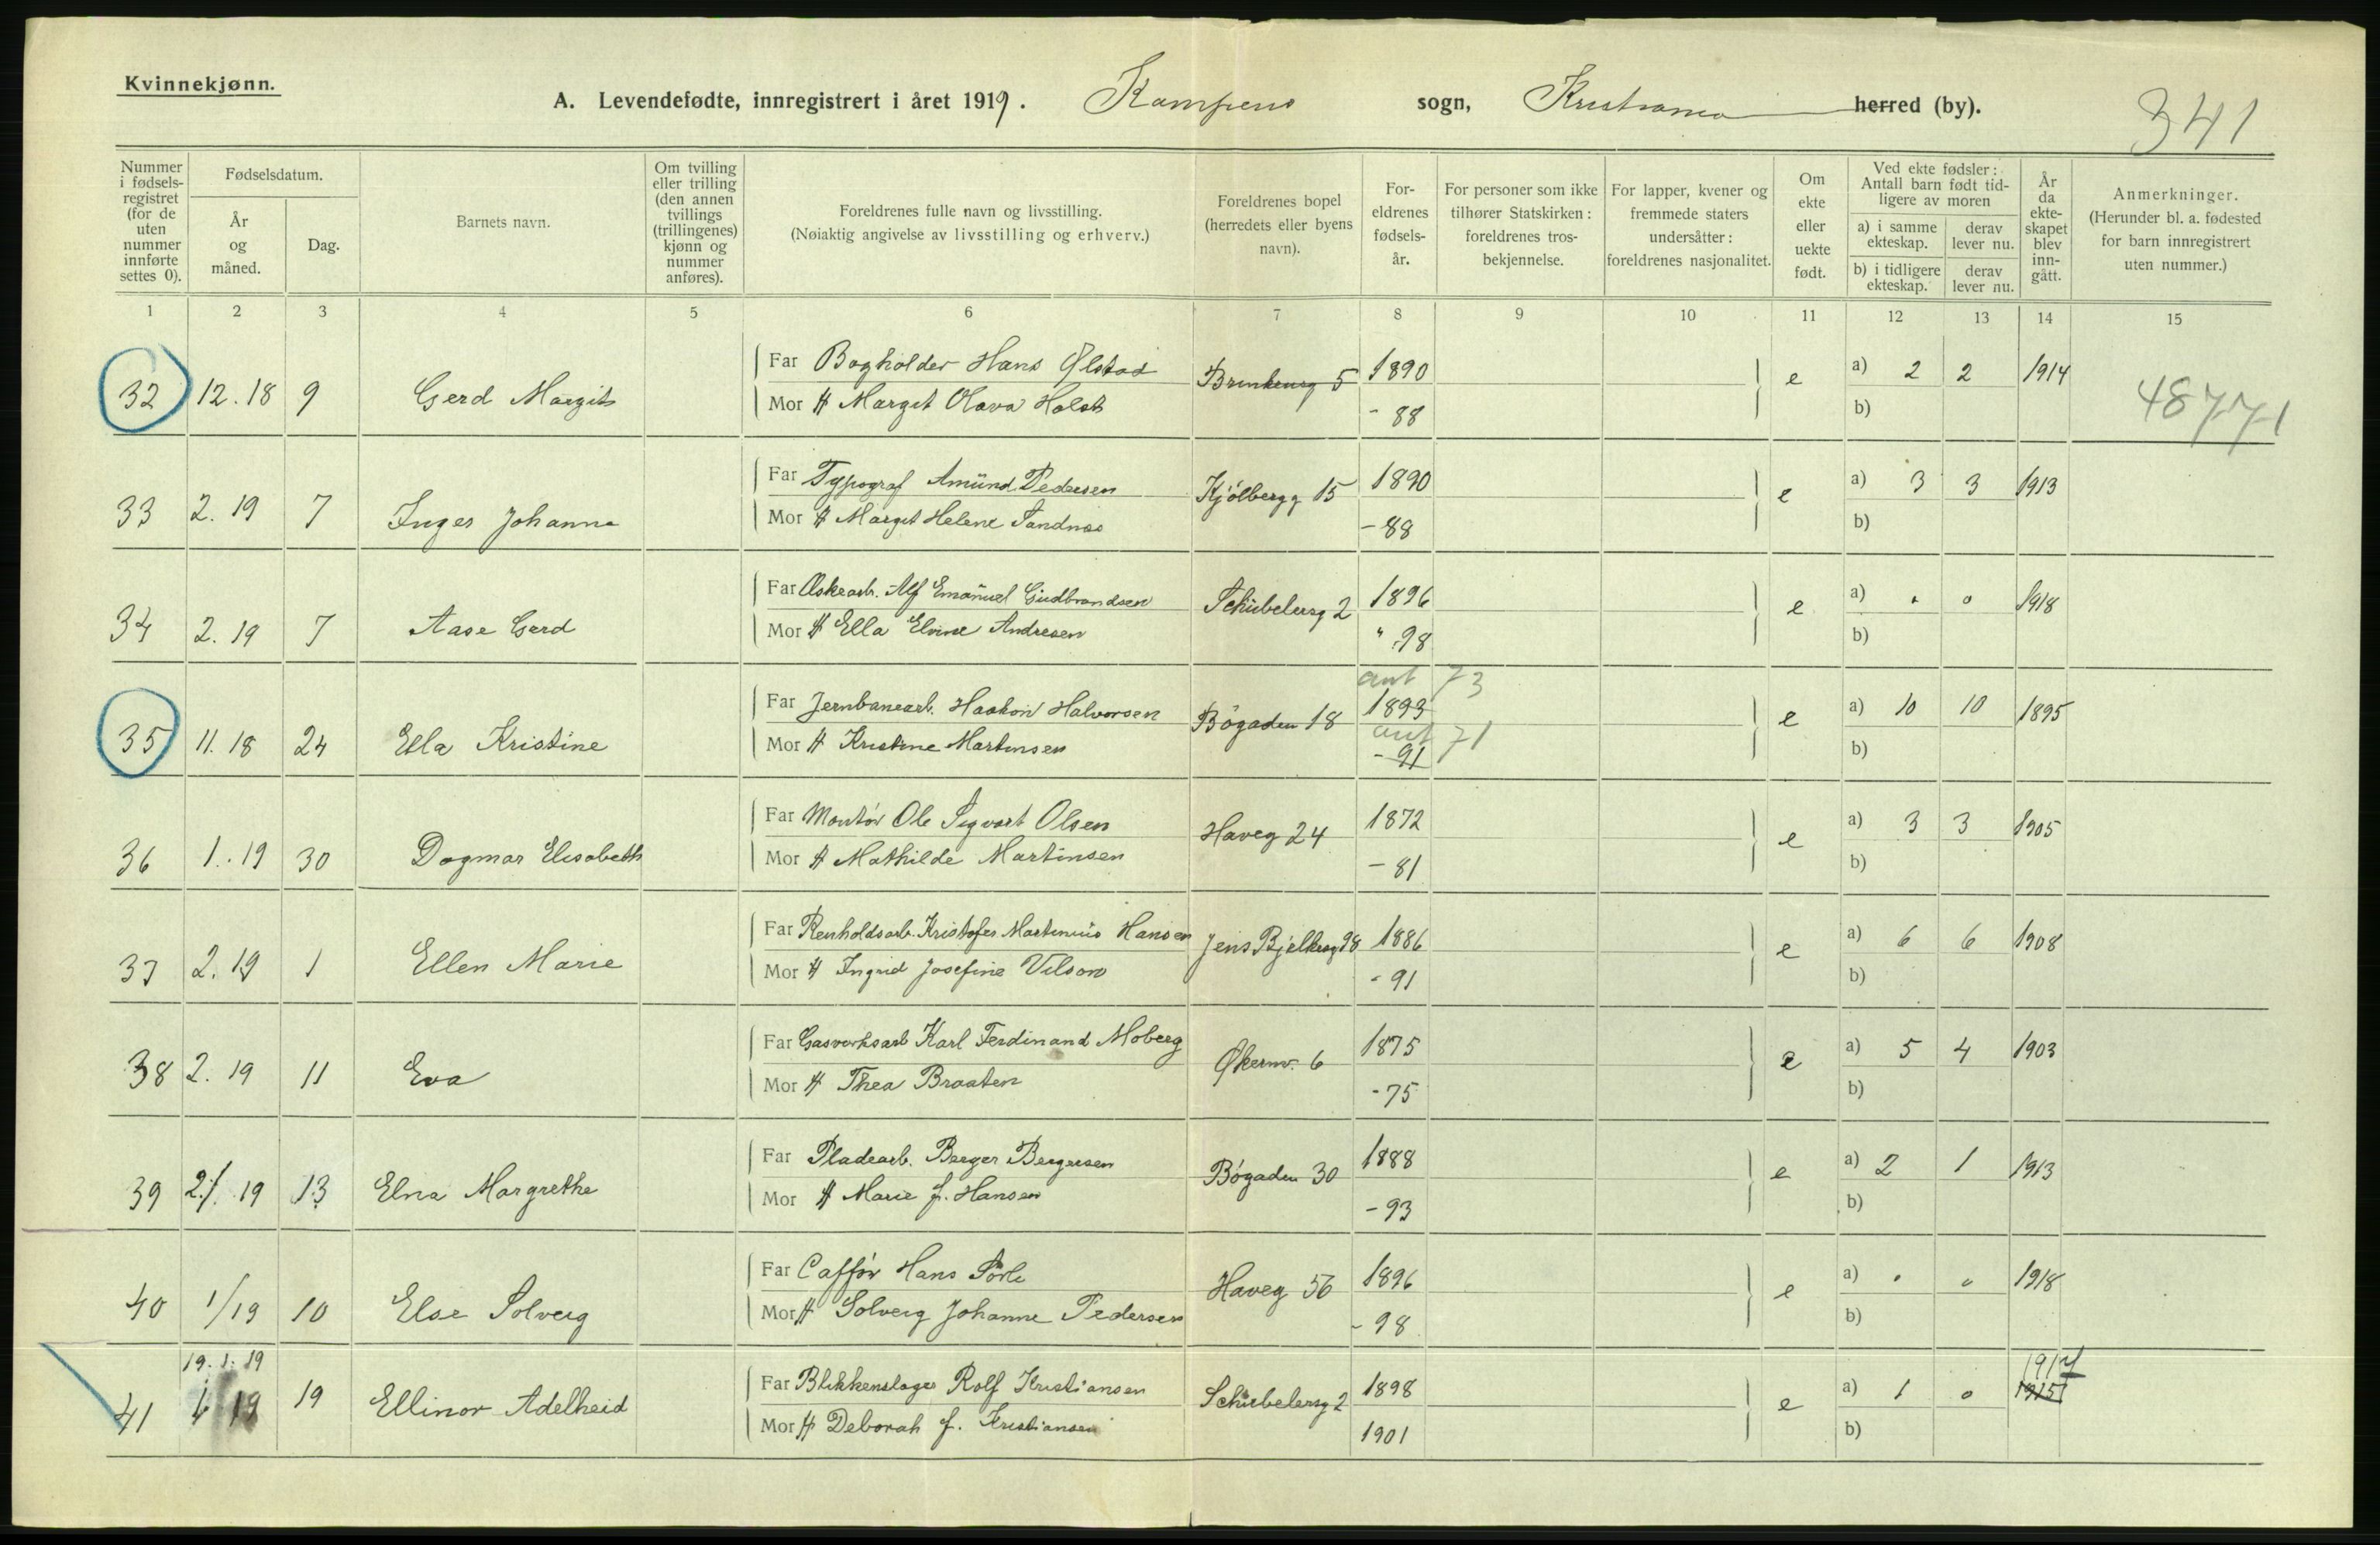 Kvinnekjønn.
A. Levendefødte, innregistrert i året 1919. Kampens sogn, Kristiania herred (by).
341
Nummer i fødselsregistret (for de uten nummer innførte settes 0).
Fødselsdatum.
År og måned.
Dag.
Barnets navn.
Om tvilling eller trilling (den annen tvillings (trillingenes) kjønn og nummer anføres).
Foreldrenes fulle navn og livsstilling.
(Nøiaktig angivelse av livsstilling og erhverv.)
Foreldrenes bopel (herredets eller byens navn).
Foreldrenes fødselsår.
For personer som ikke tilhører Statskirken: foreldrenes trosbekjennelse.
For lapper, kvener og fremmede staters undersåtter: foreldrenes nasjonalitet.
Om ekte eller uekte født.
Ved ekte fødsler: Antall barn født tidligere av moren
a) i samme ekteskap.
derav lever nu.
b) i tidligere ekteskap.
derav lever nu.
År da ekteskapet blev inngått.
Anmerkninger.
(Herunder bl. a. fødested for barn innregistrert uten nummer.)
1 2 3 4 5 6 7 8 9 10 11 12 13 14 15
Far Bogholder Hans Ølstad 1890 a) 2 2 1914
32 12.18 9 Gerd Margit Brinkeng 5 e 48771
Mor H Margit Olava Holst - 88 b)
Far Typograf Amund Pedersen 1890 a) 3 3 1913
33 2.19 7 Inger Johanne Kjölbergg 15 e
Mor H Margit Helene Sandnæs - 88 b)
Far Askearb. Alf Emanuel Gudbrandsen 1896 a) " o 1918
34 2.19 7 Aase Gerd Schübelersg 2 e
Mor H Ella Elvine Andresen " 98 b)
ant 73
Far Jernbanearb. Haakon Halvorsen 1893 a) 10 10 1895
35 11.18 24 Ella Kristine Bögaden 18 ant 71 e
Mor H Kristine Martinsen - 91 b)
Far Montör Ole Sigvart Olsen 1872 a) 3 3 1905
36 1.19 30 Dagmar Elisabeth Haveg 24 e
Mor H Mathilde Martinsen - 81 b)
Far Renholdsarb. Kristofer Martinius Hansen 1886 a) 6 6 1908
37 2.19 1 Ellen Marie Jens Bjelkesg 98 e
Mor H Ingrid Josefine Vilson - 91 b)
Far Gasverksarb Karl Ferdinand Moberg 1875 a) 5 4 1903
38 2.19 11 Eva Økernv. 6 e
Mor H Thea Braaten - 75 b)
Far Pladearb. Berger Bergersen 1888 a) 2 1 1913
39 2/19 13 Elna Margrethe Bögaden 30 e
Mor H Marie f. Hansen - 93 b)
Far Caffør Hans Sörli 1896 a) " " 1918
40 1/19 10 Else Solveig Haveg 56 e
Mor H Solveig Johanne Pedersen - 98 b)
19.1.19 1917
Far Blikkenslager Rolf Kristiansen 1898 a) 1 o 1915
41 19 19 Ellinor Adelheid Schübelersg 2 e
Mor H Deborah f. Kristiansen 1901 b)